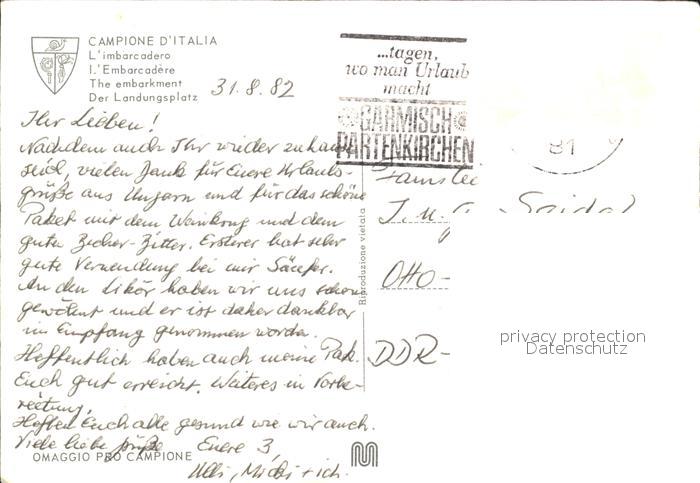 CAMPIONE D'ITALIA
L'imbarcadero
L'Embarcadère
The embarkment
Der Landungsplatz
31.8.82
...tagen,
wo man Urlaub
macht
GARMISCH
PARTENKIRCHEN
81
Ihr Lieben!
Nachdem auch Ihr wieder zuhause
seid, vielen Dank für Euere Urlaubs-
grüße aus Ungarn und für das schöne
Paket mit dem Weinkrug und dem
guten Becher-Bitter. Ersterer hat sehr
gute Verwendung bei mir Säufer.
An den Likör haben wir uns schon
gewöhnt und er ist daher dankbar
in Empfang genommen worden.
Hoffentlich haben auch meine Pak.
Euch gut erreicht. Weiteres in Vorbe-
reitung.
Hoffen Euch alle gesund wie wir auch.
Viele liebe Grüße Euere 3,
Familie
J. u. G.
Otto-
DDR-
Riproduzione vietata
privacy protection
Datenschutz
OMAGGIO PRO CAMPIONE